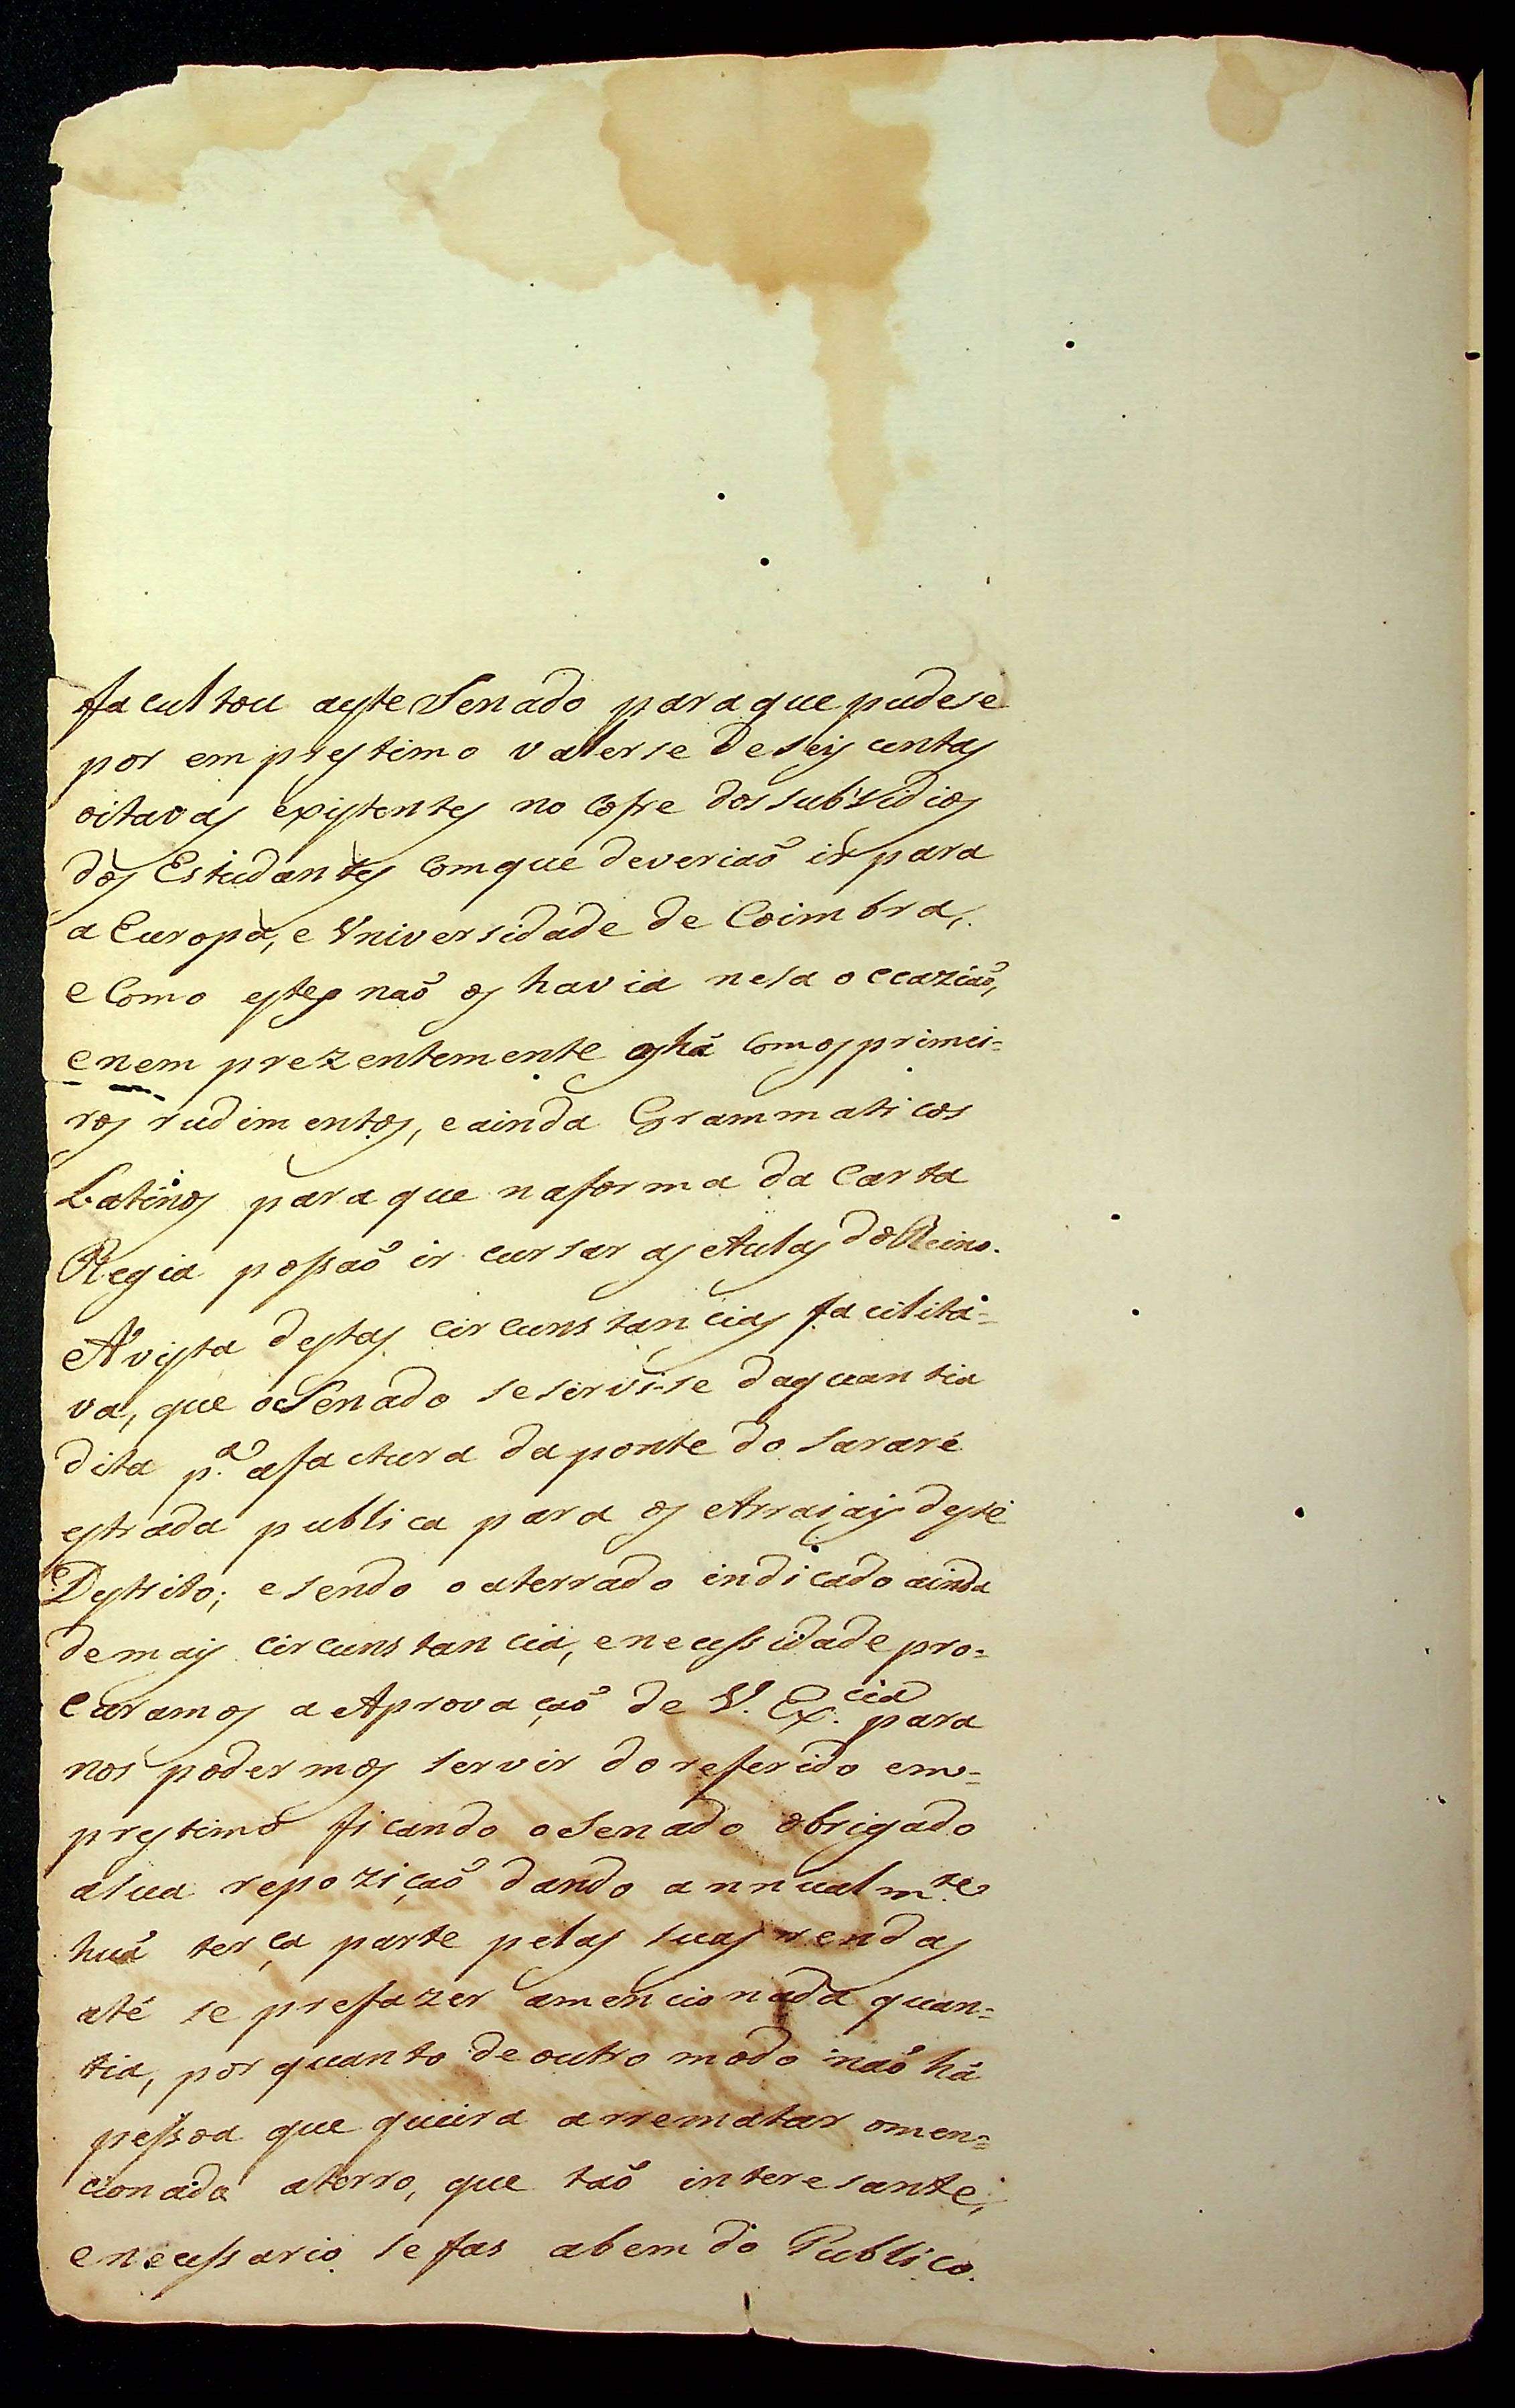 facultou aeste Senado para que pudese
por emprestimo valerse de seis centas
oitavas existentes no Cofre dos subsidios
dos Estudantes com que deveriaõ ir para
a Europa, e Vniversidade de Coimbra,
e Como estes naõ os havia nesa occaziaõ,
enem prezentemente os há Com os primei=
ros rudimentos, e ainda Grammaticos
Latinos para que naforma da Carta
Regia poſsaõ ir cursar as Aulas do Reino.
Á vista destas circunstancias facilitá=
va, que o Senado se servi-se daquantia
dita p.ª afactura daponte do Sararé
estrada publica para os Arraiais deste
Destrito; e sendo o aterrado indicado ainda
demais circunstancia, eneceſsidade pro=
curamos a Aprovaçaõ de V. Ex.cia para
nos podermos servir do referido em=
prestimo ficando o Senado obrigado
asua repoziçaõ dando annualm.te
huã terça parte pelas suas rendas
até se prefazer amencionada quan=
tia, por quanto de outro modo naõ há
peſsoa que queira arrematar omen=
cionado aterro, que taõ interesante,
eneceſsario se fas abem do Publico.